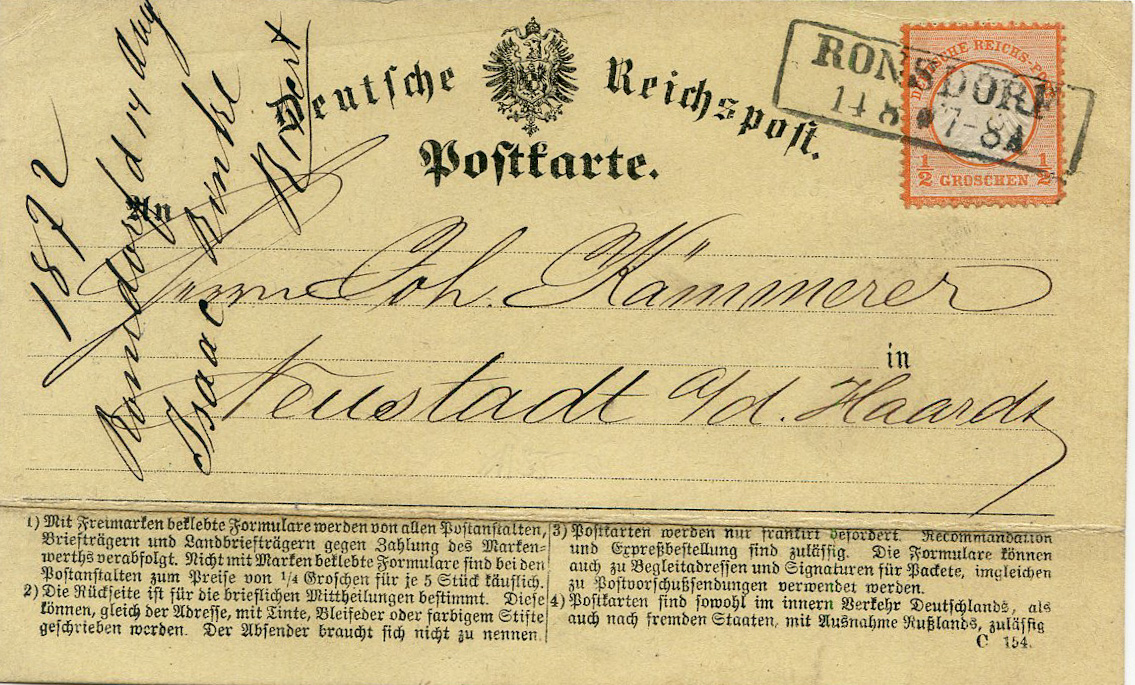 Deutsche Reichspost.
Postkarte.
RONSDORF
14 8 * 7-8A
DEUTSCHE REICHS-POST
1/2 GROSCHEN 1/2
1872
Ronsdorf d 14 Aug
Isaac
An
Herrn Joh. Kämmerer
in
Neustadt a/d. Haardt
1) Mit Freimarken beklebte Formulare werden von allen Postanstalten,
Briefträgern und Landbriefträgern gegen Zahlung des Marken=
werths verabfolgt. Nicht mit Marken beklebte Formulare sind bei den
Postanstalten zum Preise von 1/4 Groschen für je 5 Stück käuflich.
2) Die Rückseite ist für die brieflichen Mittheilungen bestimmt. Diese
können, gleich der Adresse, mit Tinte, Bleifeder oder farbigem Stifte
geschrieben werden. Der Absender braucht sich nicht zu nennen.
3) Postkarten werden nur frankirt befördert. Recommandation
und Expreßbestellung sind zulässig. Die Formulare können
auch zu Begleitadressen und Signaturen für Packete, imgleichen
zu Postvorschußsendungen verwendet werden.
4) Postkarten sind sowohl im innern Verkehr Deutschlands, als
auch nach fremden Staaten, mit Ausnahme Rußlands, zulässig
C 154.